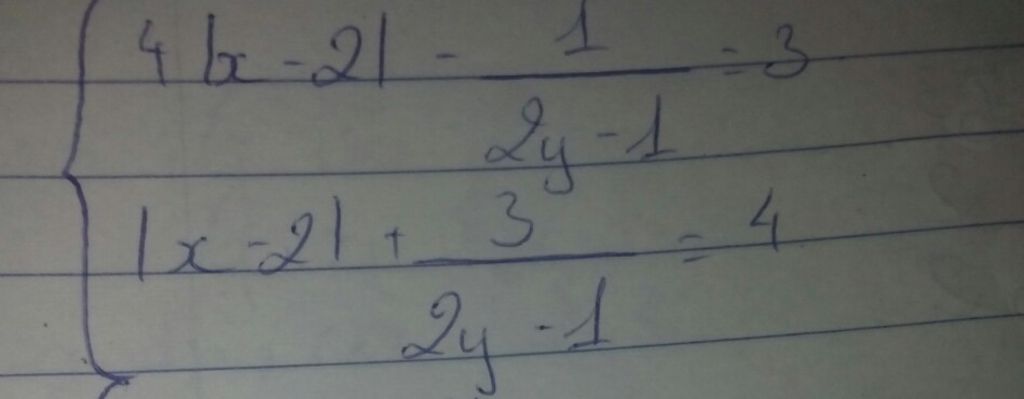 4 |x - 2| - 1/(2y - 1) = 3
|x - 2| + 3/(2y - 1) = 4